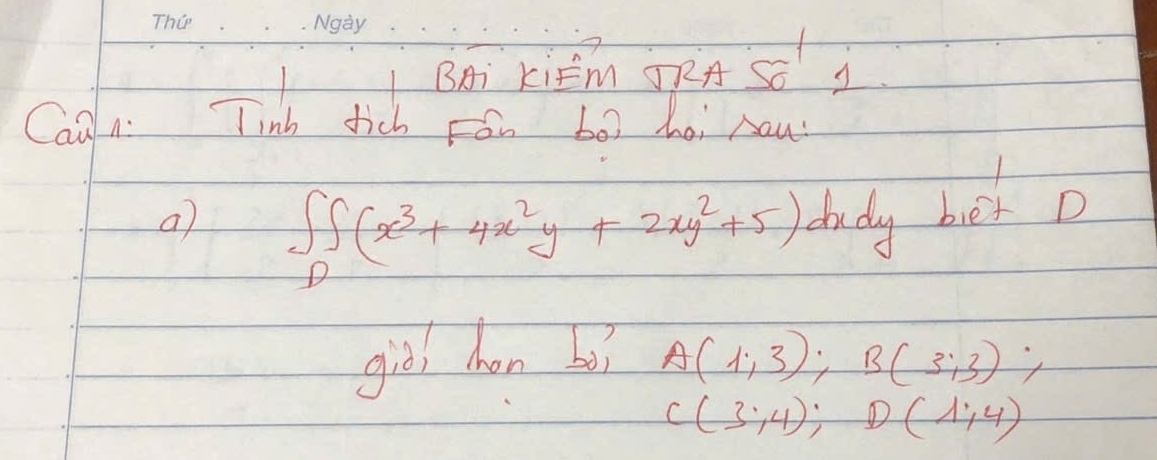 Thứ . . . . Ngày . . . . . . .
BÀI KIỂM TRA SỐ 1.
Câu 1: Tính tích Fân bội hai sau:
a) ∬(x³ + 4x²y + 2xy² + 5) dxdy biết D
D
giới hạn bởi A(1;3); B(3;3);
C(3;4); D(1;4)